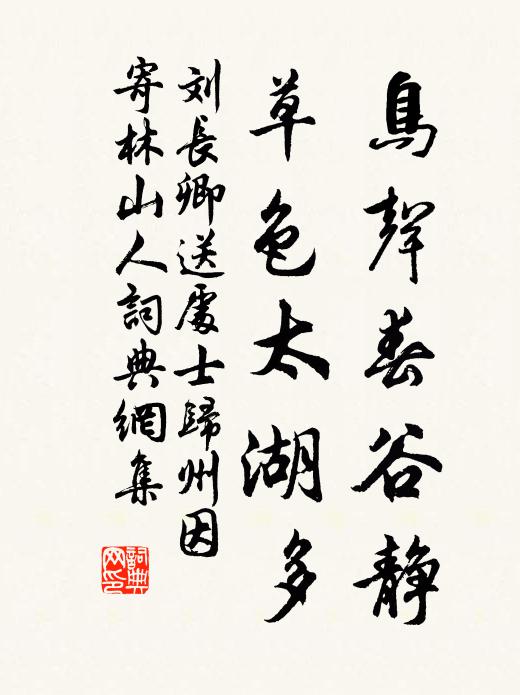 鳥聲春谷静
草色太湖多
刘長卿送處士歸州因
寄林山人詞典網集
詞典
网印